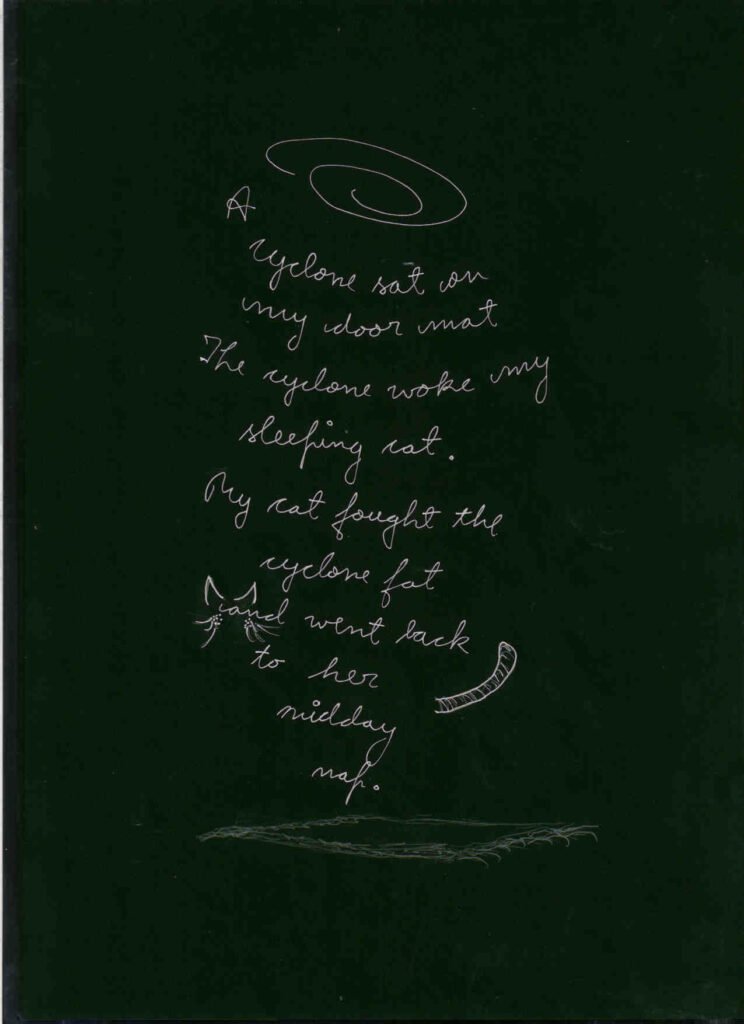 A
cyclone sat on
my door mat
The cyclone woke my
sleeping cat.
My cat fought the
cyclone fat
and went back
to her
midday
nap.